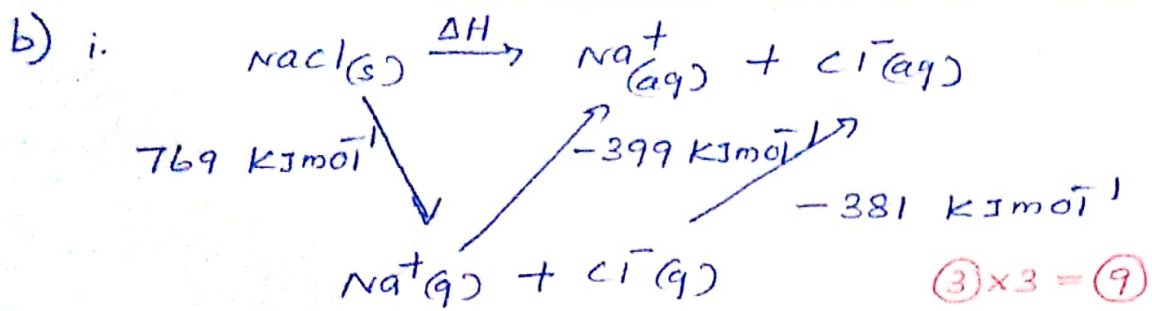 b) i.
NaCl(s) ΔH → Na⁺(aq) + Cl⁻(aq)
769 KJmol⁻¹ -399 KJmol⁻¹
-381 KJmol⁻¹
Na⁺(g) + Cl⁻(g) ③×3 = ⑨